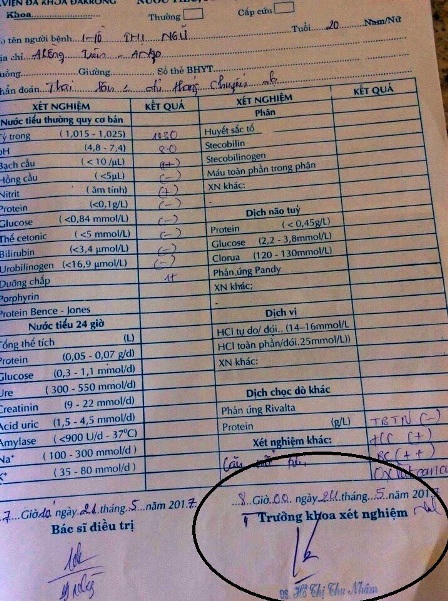 VIỆN ĐA KHOA ĐAKRÔNG
Khoa
Thường
Cấp cứu
tên người bệnh HỒ THỊ NGÙ Tuổi 20 Nam/Nữ
chỉ
Giường Số thẻ BHYT
đoán Thai
XÉT NGHIỆM KẾT QUẢ XÉT NGHIỆM KẾT QUẢ
Nước tiểu thường quy cơ bản Phân
Tỷ trọng (1,015 - 1,025) 1030 Huyết sắc tố
pH (4,8 - 7,4) Stecobilin
Bạch cầu (< 10 /µL) (++) Stecobilinogen
Hồng cầu (<5µL) (-) Máu toàn phần trong phân
Nitrit (âm tính) (+) XN khác:
Protein (<0,1g/L) (-)
Glucose (<0,84 mmol/L) (-) Dịch não tuỷ
Thể cetonic (<5 mmol/L) (-) Protein (< 0,45g/L)
Bilirubin (<3,4 µmol/L) (-) Glucose (2,2 - 3,8mmol/L)
Urobilinogen (<16,9 µmol/L) (-) Clorua (120 - 130mmol/L)
Dưỡng chấp Phản ứng Pandy
Porphyrin XN khác:
Protein Bence - Jones
Nước tiểu 24 giờ Dịch vị
Tổng thể tích (L) HCl tự do/ dới.. (14–16mmol/L
Protein (0,05 - 0,07 g/d) HCl toàn phần/dới.25mmol/L))
Glucose (0,3 - 1,1 mmol/d) XN khác:
Ure (300 - 550 mmol/d)
Creatinin (9 - 22 mmol/d) Dịch chọc dò khác
Acid uric (1,5 - 4,5 mmol/d) Phản ứng Rivalta
Amylase (<900 U/d - 37°C) Protein (g/L) TBTN (-)
Na⁺ (100 - 300 mmol/d) Xét nghiệm khác: HC (+)
K⁺ (35 - 80 mmol/d) BC (++)
7 Giờ 10 ngày 24 tháng 5 năm 2017 8 Giờ 00 ngày 24 tháng 5 năm 2017
Bác sĩ điều trị Trưởng khoa xét nghiệm
Hồ Thị Thu Nhâm